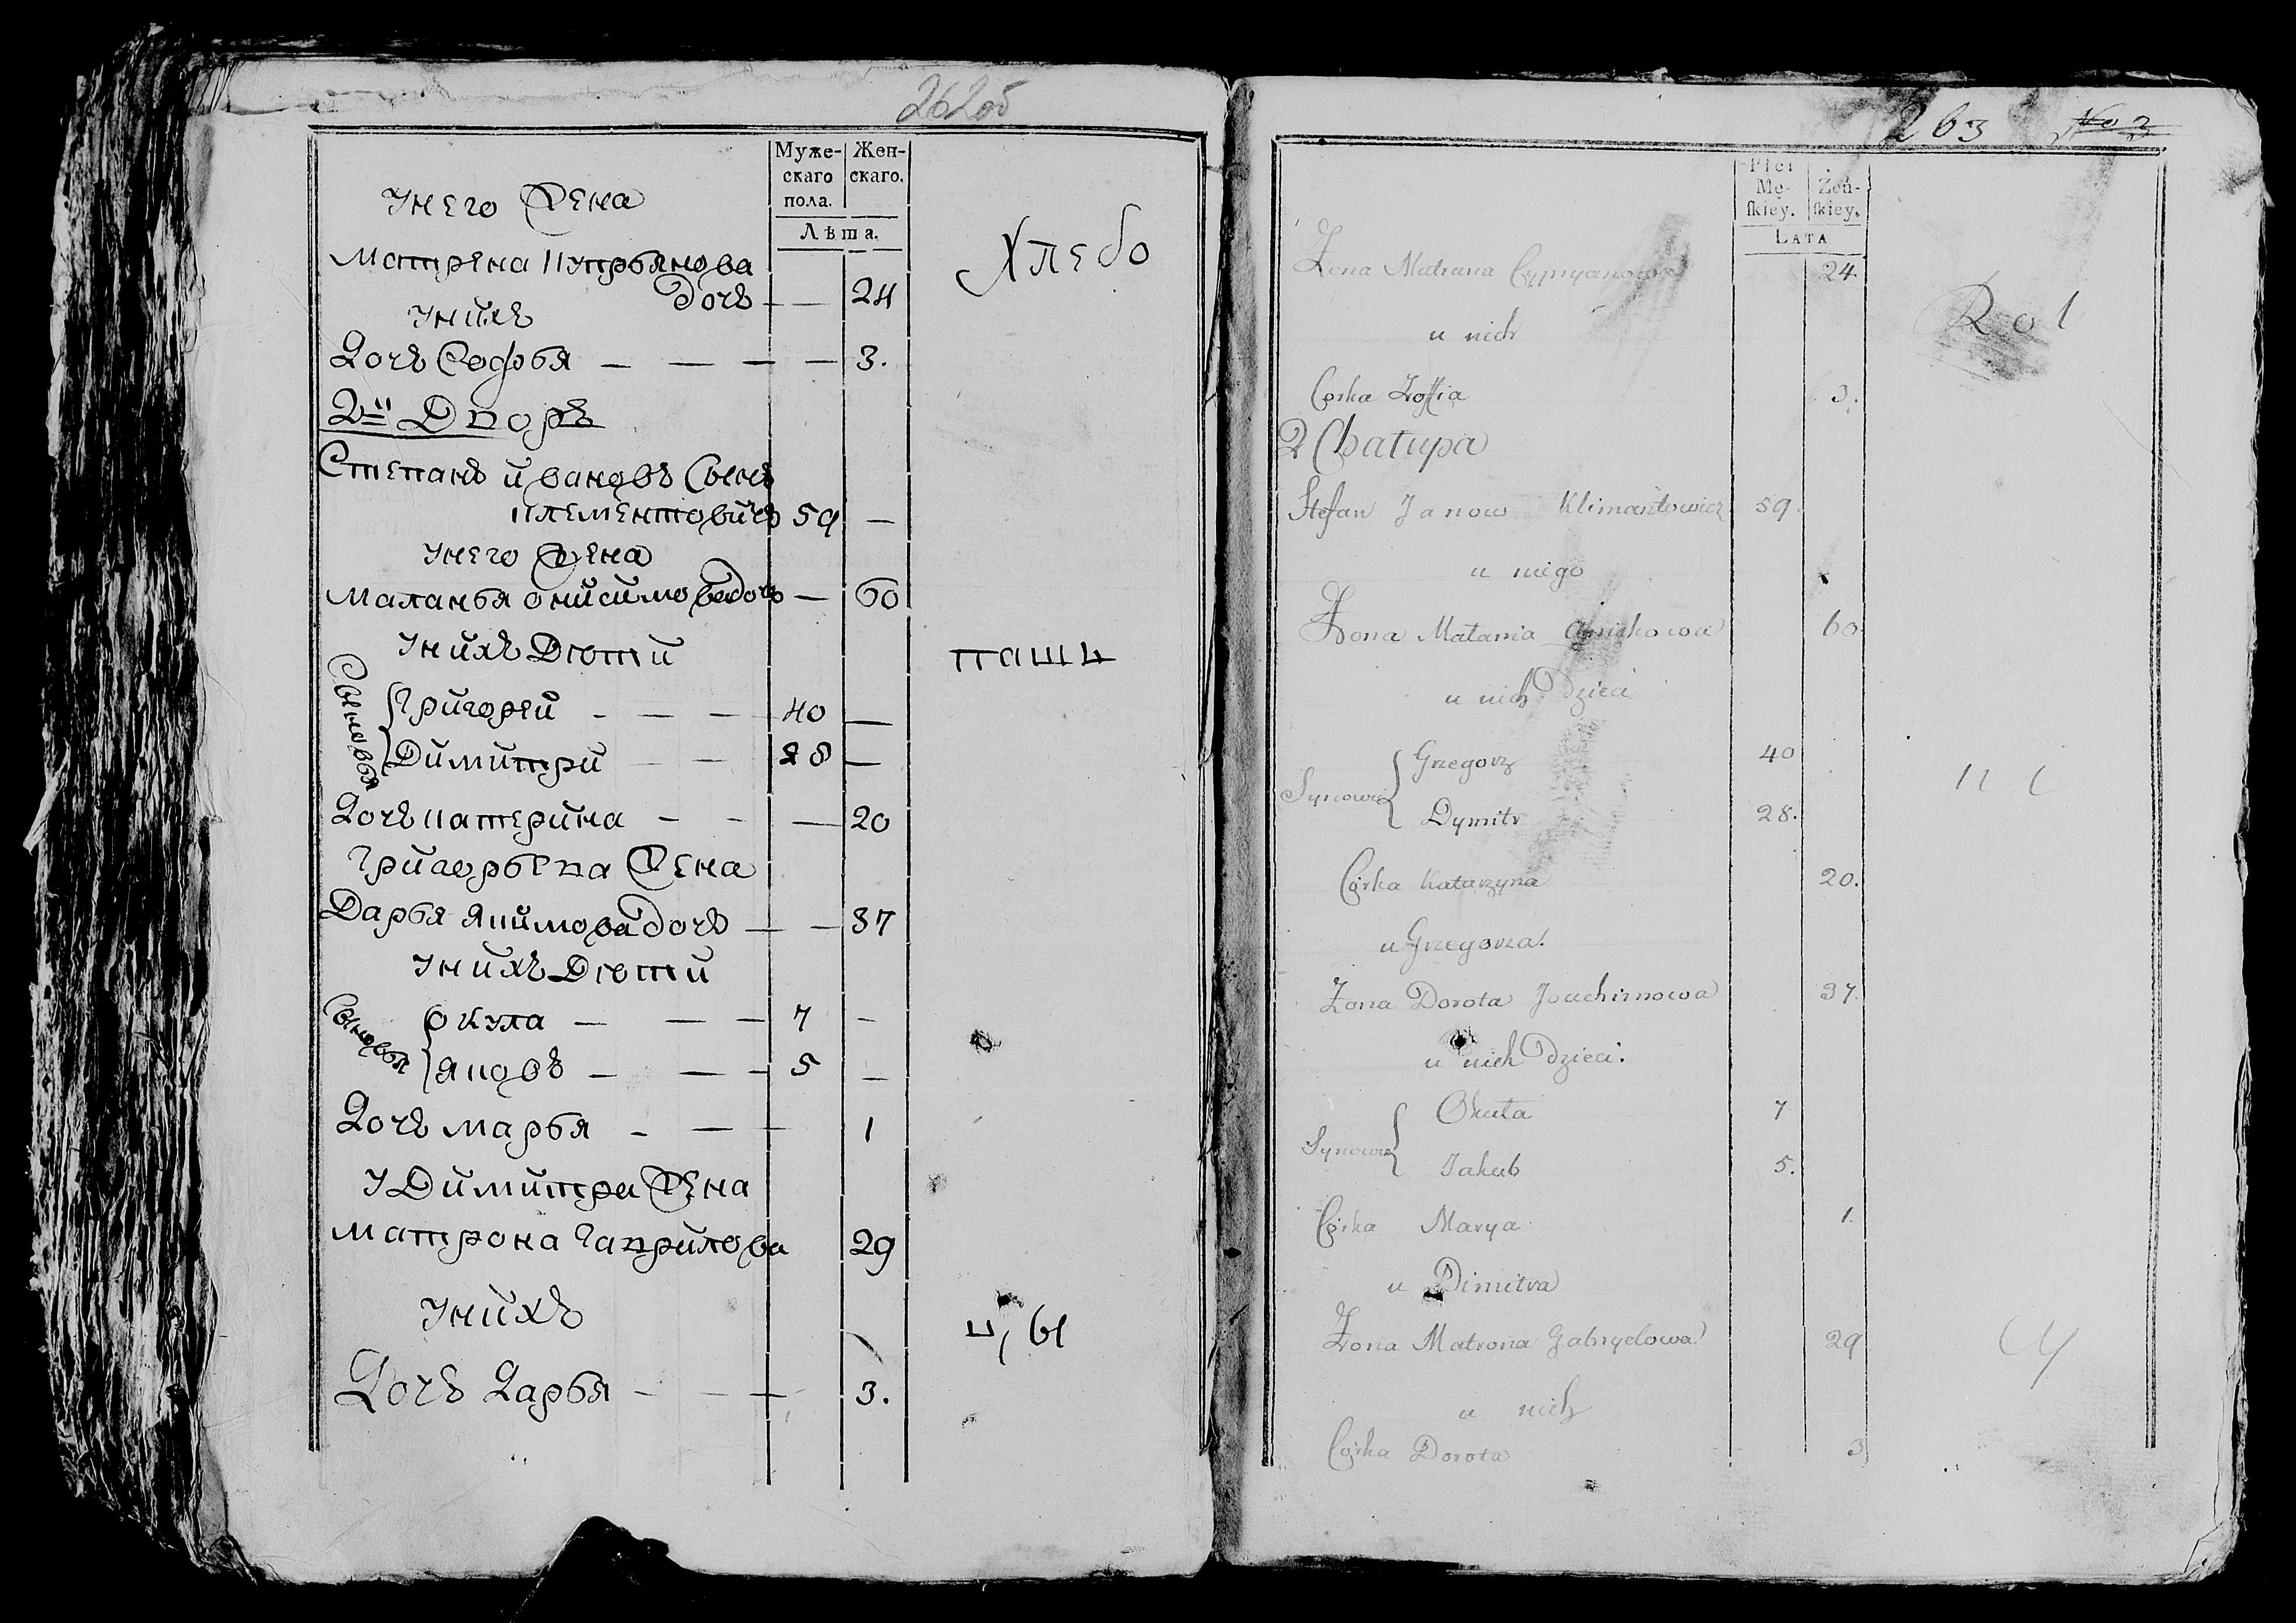 262об
Муже-
скаго
пола.
Жен-
скаго.
Лѣта.
Унего Жена
Матрена Купрьянова
дочь — 24
Унихъ
Дочь Софья — — — — 3.
Хлебо
2й Дворъ
Степанъ ивановъ Сынъ
клементовичъ 59 —
Унего Жена
Маланья онисимова дочь — 60
Унихъ Дѣти
паш
Сыновья
Григорей - — — 40 —
Димитри — — 28 —
Дочь катерина - - — 20
Григорьева Жена
Дарья Якимова дочь — — 37
Унихъ Дѣти
Сыновья
окула — — — 7 —
яковъ — — — 5 —
Дочь марья - — — 1
У Димитра Жена
матрона гаврилова 29
Унихъ
цы
Дочь Дарья — — — 3.
263 No 3
Płci
Mę-
ſkiey.
Żeń-
ſkiey.
LATA
Zona Matrana Cypryanowa 24.
u nich
Rol
Corka Zoffia 3.
2 Chałupa
Stefan Janow Klimantowicz 59.
u niego
Zona Małania 60
u nich Dzieci
Synowie
Grzegorz 40
Dymitr 28.
ni
Córka Katarzyna 20.
u Grzegorza.
Zona Dorota Joachimowa 37.
u nich Dzieci.
Synowie
Okuła 7
Jakub 5.
Córka Marya 1.
u Dimitra
Zona Matrona Gabryelowa 29
cy
u nich
Córka Dorota 3